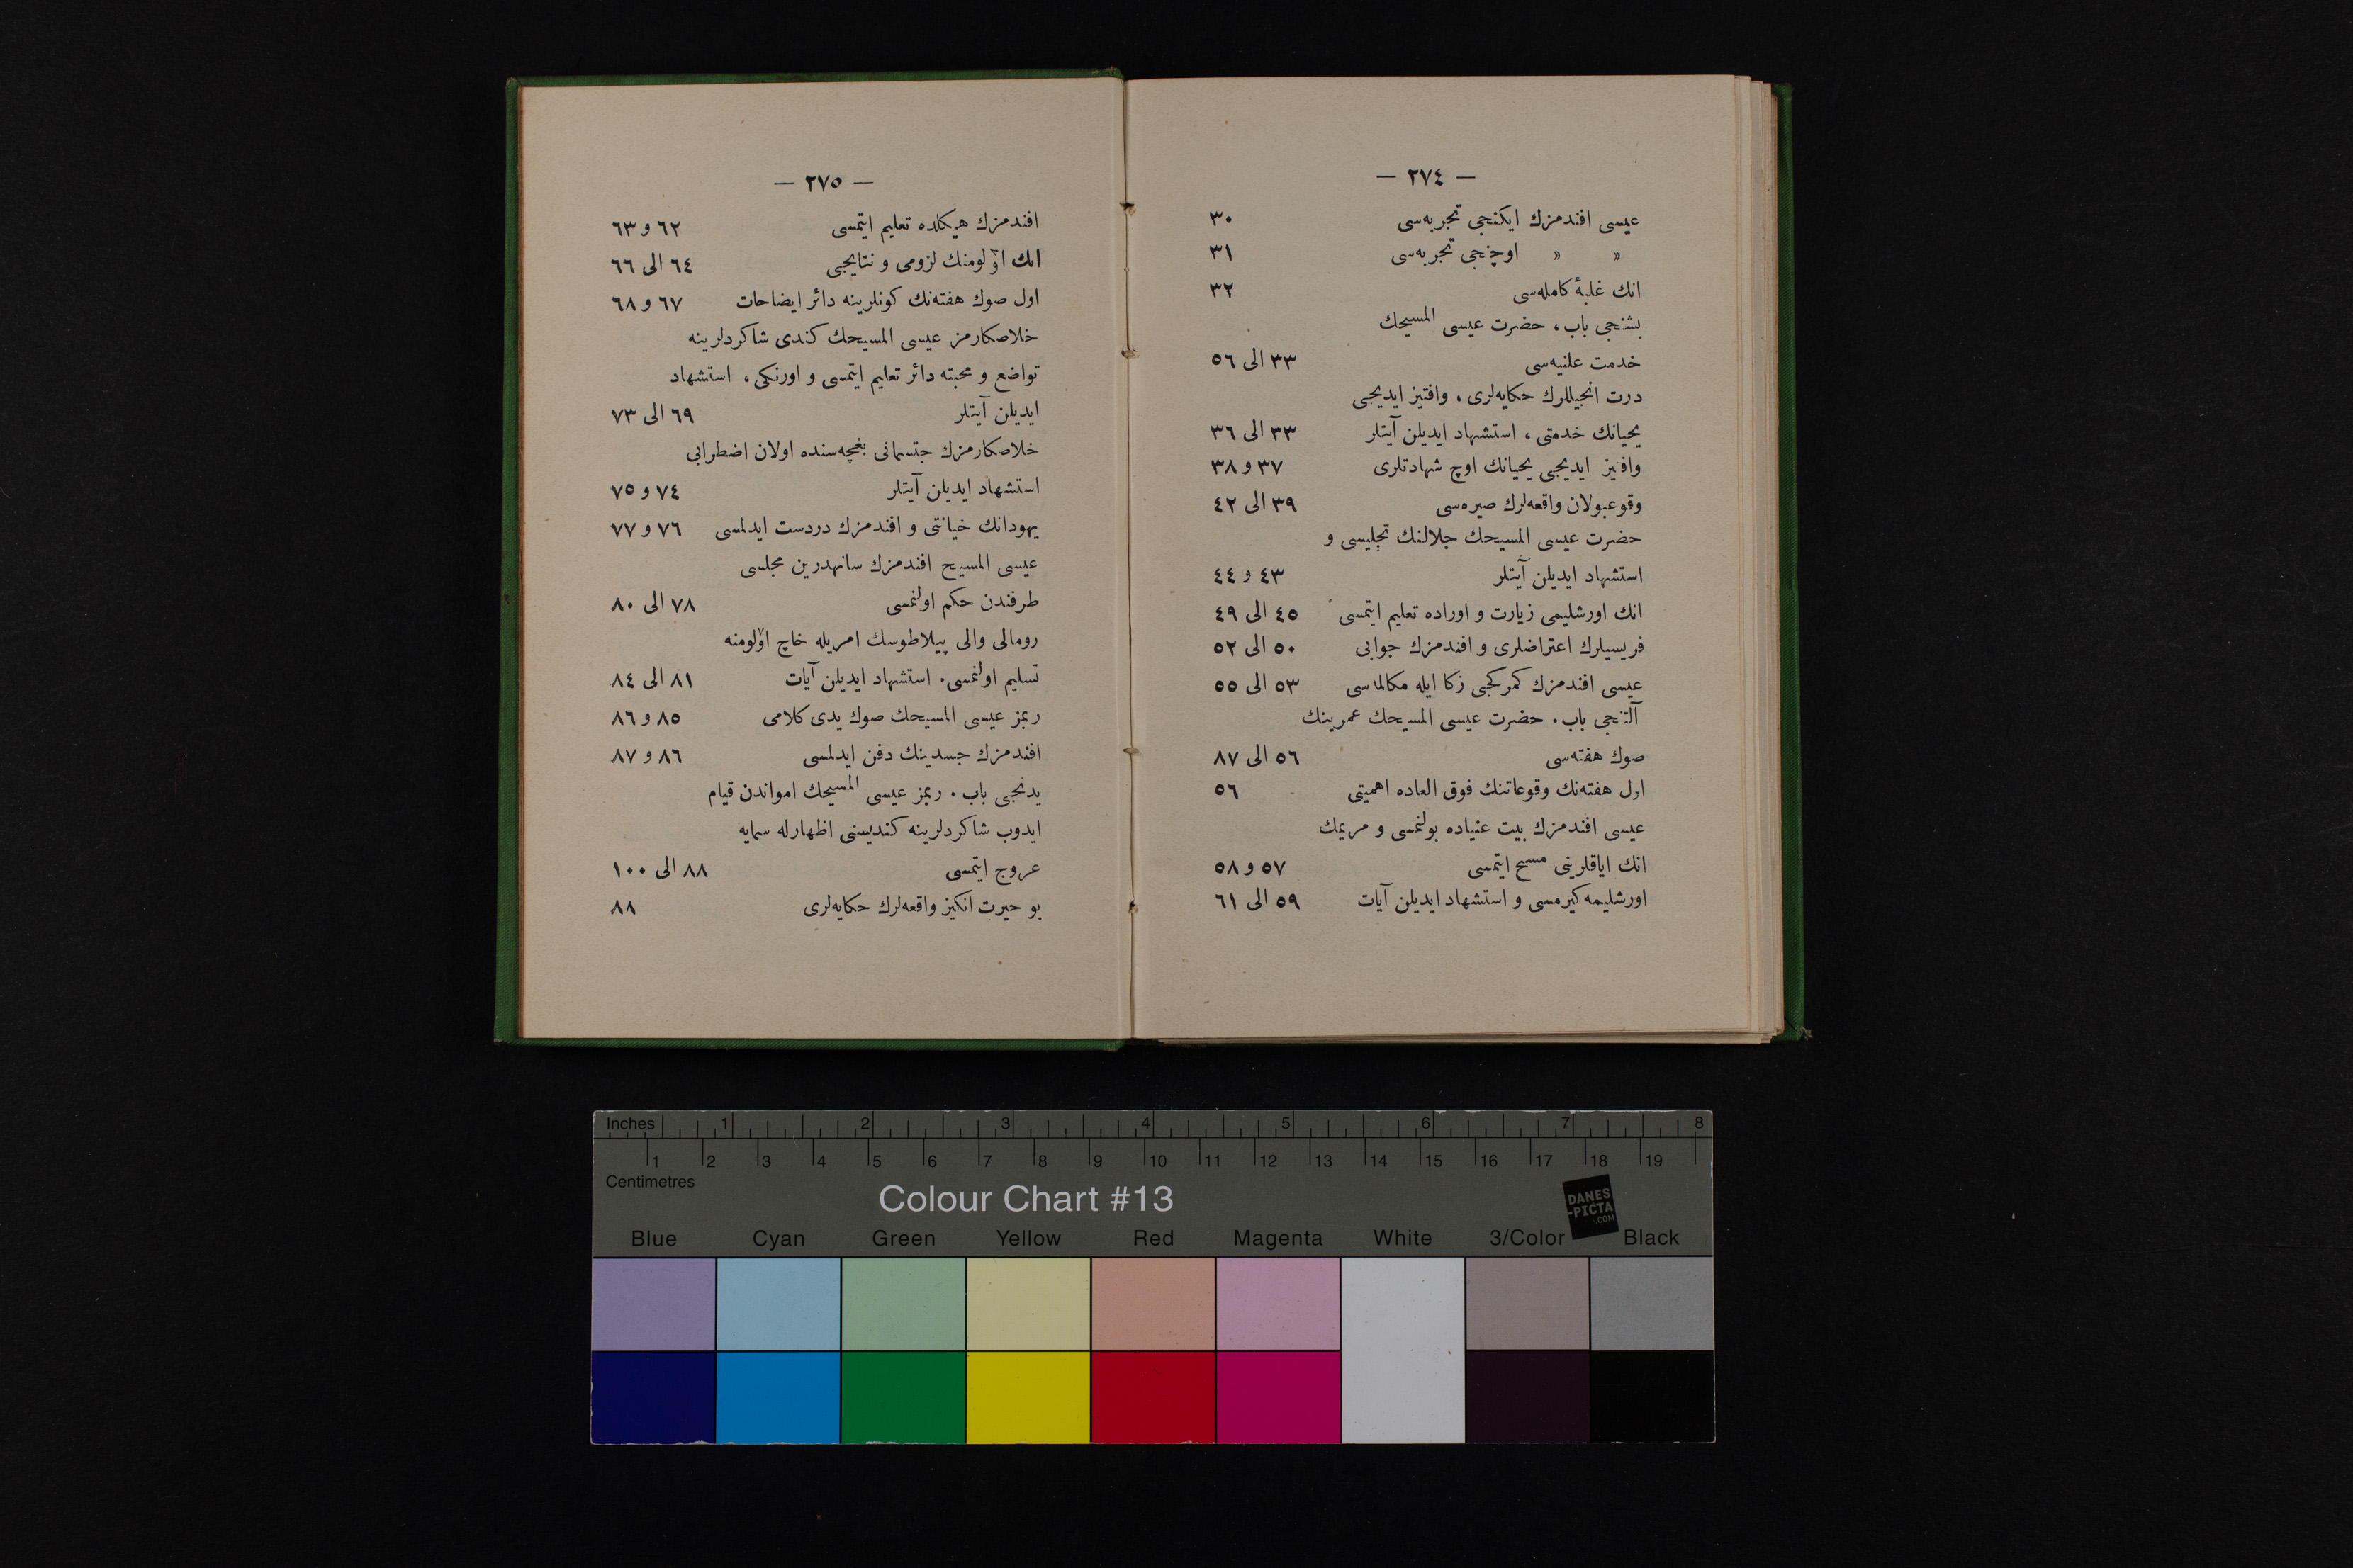 — ٢٧٤ —
عيسى افندمزك ايكنجى تجربه‌سى ٣٠
« « اوچنجى تجربه‌سى ٣١
انك غلبۀ كامله‌سى ٣٢
بشنجى باب ، حضرت عيسى المسيحك
خدمت علنيه‌سى ٣٣ الى ٥٦
درت انجيللرك حكايه‌لرى ، وافتيز ايديجى
يحيانك خدمتى ، استشهاد ايديلن آيتلر ٣٣ الى ٣٦
وافتيز ايديجى يحيانك اوچ شهادتلرى ٣٧ و ٣٨
وقوعبولان واقعه‌لرك صيره‌سى ٣٩ الى ٤٢
حضرت عيسى المسيحك جلالنك تجليسى و
استشهاد ايديلن آيتلر ٤٣ و ٤٤
انك اورشليمى زيارت و اوراده تعليم ايتمسى ٤٥ الى ٤٩
فريسيلرك اعتراضلرى و افندمزك جوابى ٥٠ الى ٥٢
عيسى افندمزك كمركجى زكا ايله مكالماسى ٥٣ الى ٥٥
آلتنجى باب . حضرت عيسى المسيحك عمرينك
صوك هفته‌سى ٥٦ الى ٨٧
اول هفته‌نك وقوعاتنك فوق العاده اهميتى ٥٦
عيسى افندمزك بيت عنياده بولنمسى و مريمك
انك اياقلرينى مسح ايتمسى ٥٧ و ٥٨
اورشليمه كيرمسى و استشهاد ايديلن آيات ٥٩ الى ٦١
— ٢٧٥ —
افندمزك هيكلده تعليم ايتمسى ٦٢ و ٦٣
انك اۆلومنك لزومى و نتايجى ٦٤ الى ٦٦
اول صوك هفته‌نك كونلرينه دائر ايضاحات ٦٧ و ٦٨
خلاصكارمز عيسى المسيحك كندى شاكردلرينه
تواضع و محبته دائر تعليم ايتمسى و اورنكى ، استشهاد
ايديلن آيتلر ٦٩ الى ٧٣
خلاصكارمزك جتسمانى بغچه‌سنده اولان اضطرابى
استشهاد ايديلن آيتلر ٧٤ و ٧٥
يهودانك خيانتى و افندمزك دردست ايدلمسى ٧٦ و ٧٧
عيسى المسيح افندمزك سانهدرين مجلسى
طرفندن حكم اولنمسى ٧٨ الى ٨٠
رومالى والى پيلاطوسك امريله خاچ اۆلومنه
تسليم اولنمسى . استشهاد ايديلن آيات ٨١ الى ٨٤
ربمز عيسى المسيحك صوك يدى كلامى ٨٥ و ٨٦
افندمزك جسدينك دفن ايدلمسى ٨٦ و ٨٧
يدنجى باب . ربمز عيسى المسيحك امواتدن قيام
ايدوب شاكردلرينه كنديسنى اظهارله سمايه
عروج ايتمسى ٨٨ الى ١٠٠
بو حيرت انكيز واقعه‌لرك حكايه‌لرى ٨٨
Inches 1 2 3 4 5 6 7 8
1 2 3 4 5 6 7 8 9 10 11 12 13 14 15 16 17 18 19
Centimetres
Colour Chart #13
DANES
-PICTA
.COM
Blue Cyan Green Yellow Red Magenta White 3/Color Black